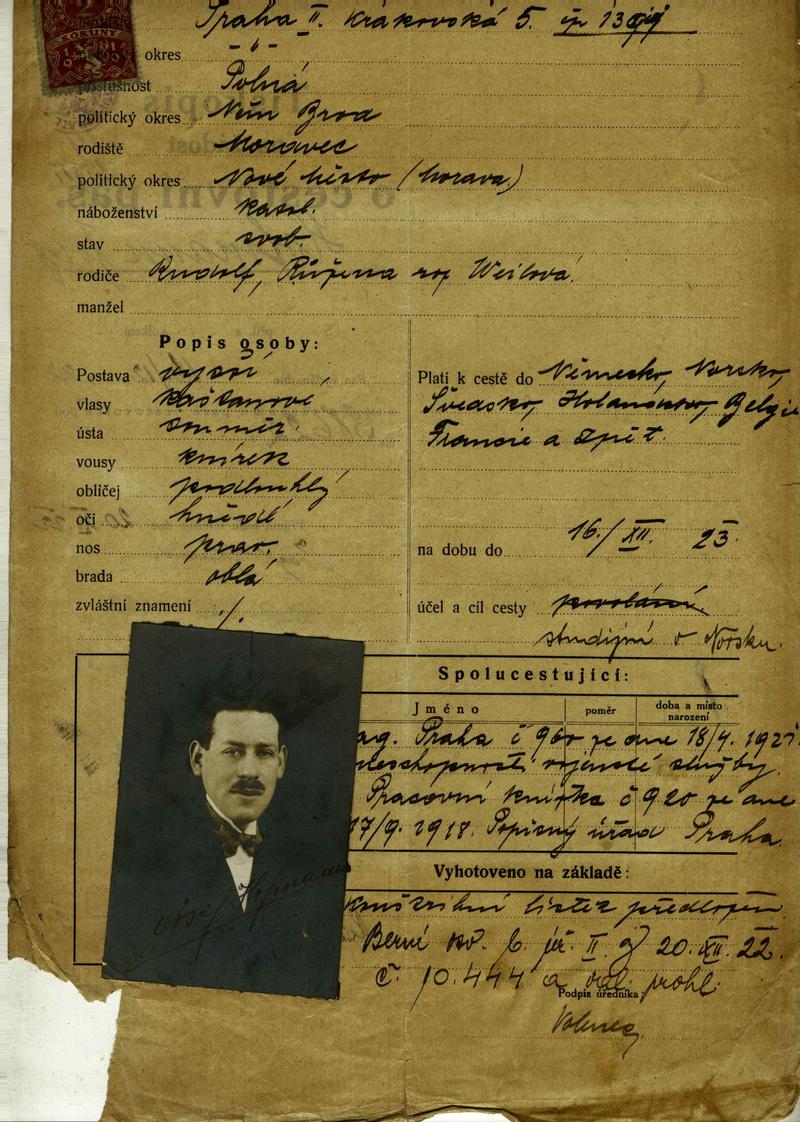 Praha II. Krakovská 5.
okres — „ —
příslušnost Polná
politický okres Něm Brod
rodiště Moravec
politický okres Nové Město (Morava)
náboženství katol.
stav svob.
rodiče Rudolf, Růžena roz Weilová.
manžel
Popis osoby:
Postava vyšší
vlasy kaštanové
ústa souměr.
vousy knírek
obličej podlouhlý
oči hnědé
nos prav.
brada oblá
zvláštní znamení ./.
Platí k cestě do Německo, Norsko,
Švédsko, Holandsko, Belgie
Francie a zpět.
na dobu do 16./XII. 23.
účel a cíl cesty povolání
studijní v Norsku.
Spolucestující:
Jméno
poměr
doba a místo
narození
mag. Praha č 960 ze dne 18/7. 1921
neschopnosti vojenské služby.
Pracovní knížka č 920 ze dne
17/9. 1918. Popisný úřad Praha.
Vyhotoveno na základě:
konskribní lístek předložen
Berní 20. XII. 22.
č. 10.444 a prohl.
Podpis úředníka:
Josef Hofmann
KORUNY